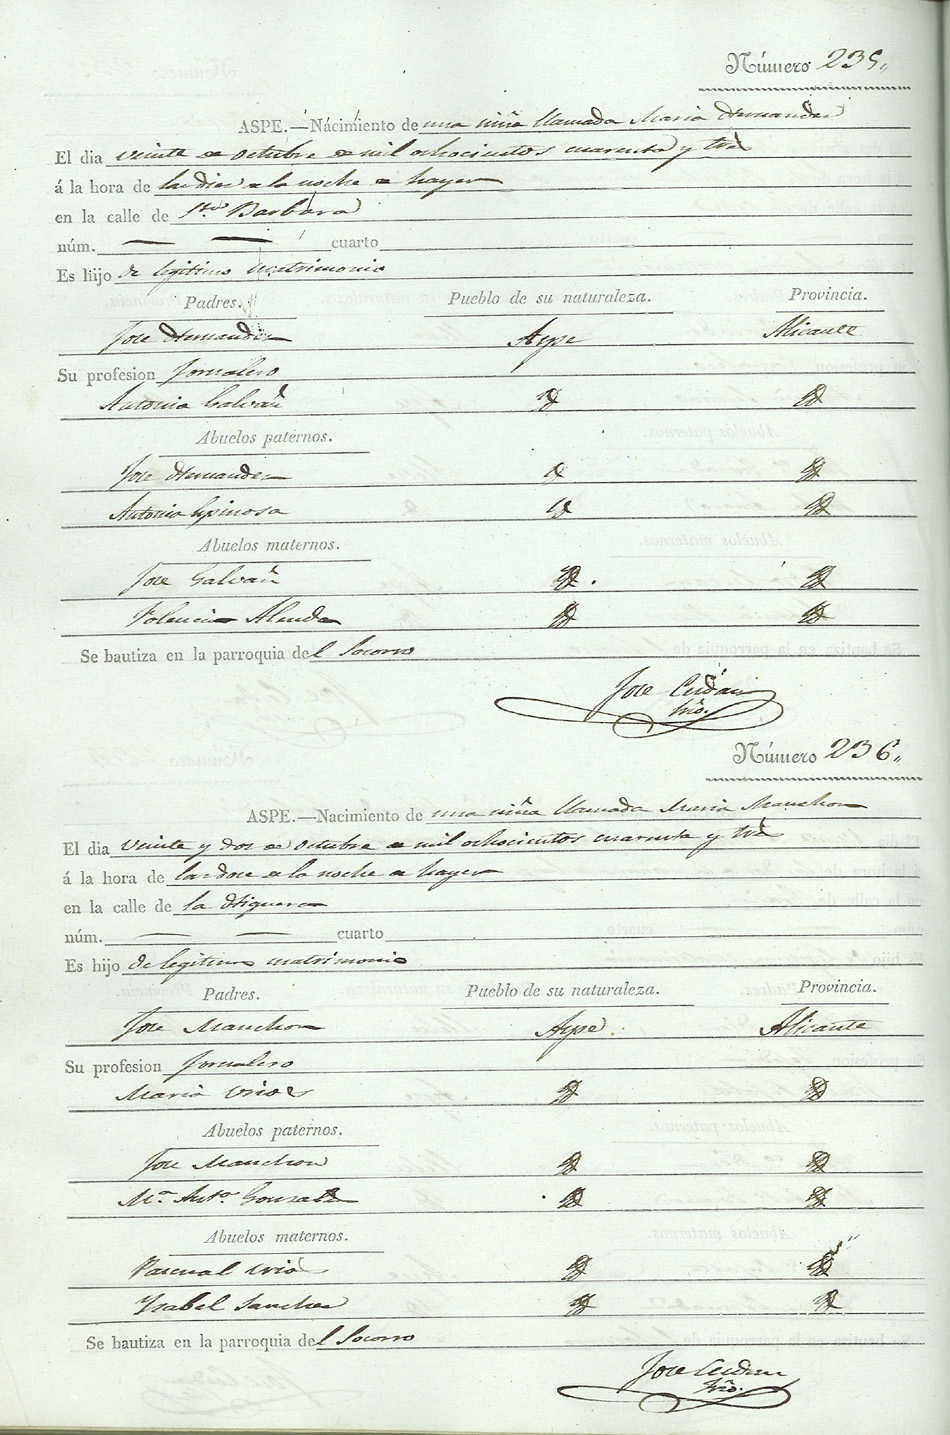 Número 235.
ASPE.—Nacimiento de una niña llamada Maria Hernandez
El dia veinte de octubre de mil ochocientos cuarenta y tres
á la hora de las diez de la noche de hayer
en la calle de Sta. Barbara
núm. — — cuarto
Es hijo de legitimo matrimonio
Padres. Pueblo de su naturaleza. Provincia.
Jose Hernandez Aspe Alicante
Su profesion Jornalero
Antonia Galvañ id id
Abuelos paternos.
Jose Hernandez id id
Antonia Espinosa id id
Abuelos maternos.
Jose Galvañ id id
Alenda id id
Se bautiza en la parroquia del Socorro
Jose Cerdan
Srio.
Número 236.
ASPE.—Nacimiento de una niña llamada Maria Manchon
El dia veinte y dos de octubre de mil ochocientos cuarenta y tres
á la hora de las doce de la noche de hayer
en la calle de la Higuera
núm. — — cuarto
Es hijo de legitimo matrimonio
Padres. Pueblo de su naturaleza. Provincia.
Jose Manchon Aspe Alicante
Su profesion Jornalero
Maria id id
Abuelos paternos.
Jose Manchon id id
Ma. Anta. Gonzalez id id
Abuelos maternos.
Pascual id id
Ysabel Sanchez id id
Se bautiza en la parroquia del Socorro
Jose Cerdan
Srio.